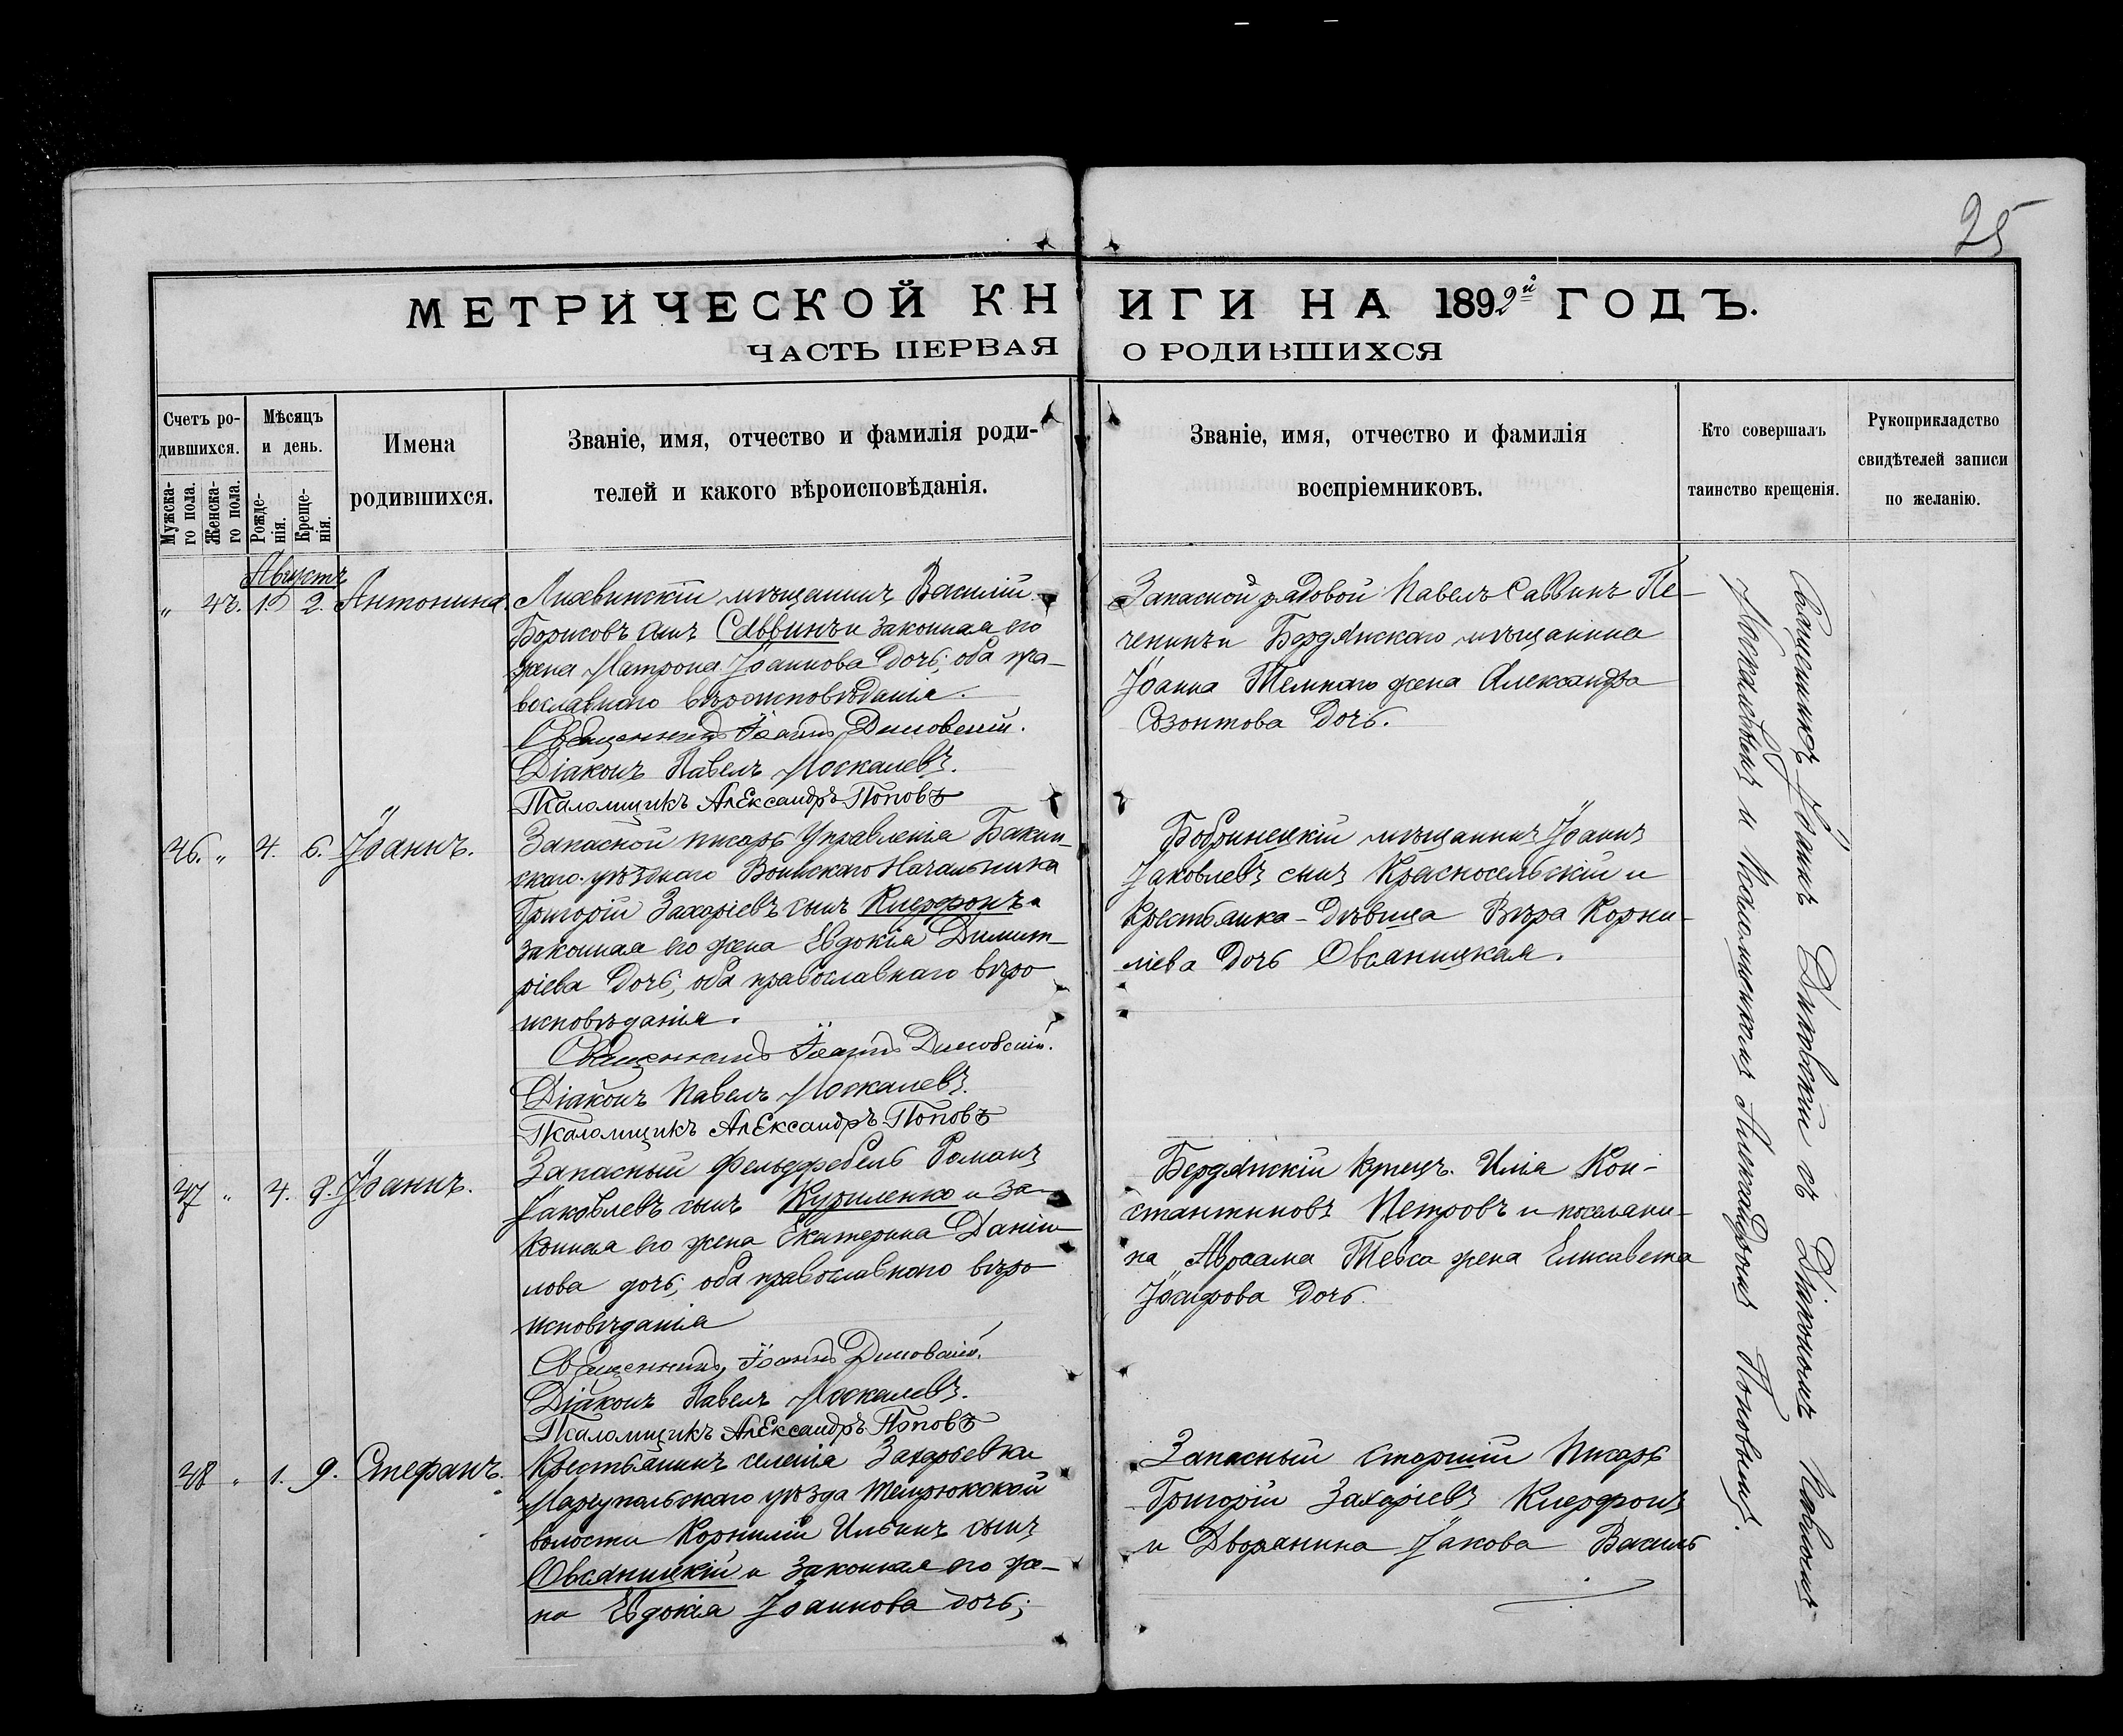 25
МЕТРИЧЕСКОЙ КНИГИ НА 1892й ГОДЪ.
ЧАСТЬ ПЕРВАЯ О РОДИВШИХСЯ
Счетъ ро-
дившихся.
Мужска-
го пола.
Женска-
го пола.
Мѣсяцъ
и день.
Рожде-
нія.
Креще-
нія.
Имена
родившихся.
Званіе, имя, отчество и фамилія роди-
телей и какого вѣроисповѣданія.
Званіе, имя, отчество и фамилія
воспріемниковъ.
Кто совершалъ
таинство крещенія.
Рукоприкладство
свидѣтелей записи
по желанію.
Августъ
" 1. 2. Антонина
Лихвинскій мѣщанинъ Василій
Борисовъ сынъ Саввинъ и законная его
жена Матрона Іоаннова дочь; оба пра-
вославнаго вѣроисповѣданія.
Священникъ Іоаннъ Диковскій.
Діаконъ Павелъ Москалевъ.
Псаломщикъ Александръ Поповъ
Запасной рядовой Павелъ Саввинъ Пе-
ченинъ и Бердянскаго мѣщанина
Іоанна Темнаго жена Александра
Созонтова дочь.
46. " 4. 6. Іоаннъ.
Запасной писарь Управленія Бакин-
скаго уѣзднаго Воинскаго Начальника
Григорій Захаріевъ сынъ Клерфонъ и
законная его жена Евдокія Димит-
ріева дочь; оба православнаго вѣро
исповѣданія.
Священникъ Іоаннъ Диковскій.
Діаконъ Павелъ Москалевъ.
Псаломщикъ Александръ Поповъ
Бобринецкій мѣщанинъ Іоаннъ
Іаковлевъ сынъ Красносельскій и
Крестьянка-дѣвица Вѣра Корни-
ліева дочь Овсяницкая.
47 " 4. 8. Іоаннъ.
Запасный Фельдфебель Романъ
Іаковлевъ сынъ Куриленко и за-
конная его жена Екатерина Даніи-
лова дочь; оба православнаго вѣро
исповѣданія
Священникъ Іоаннъ Диковскій.
Діаконъ Павелъ Москалевъ.
Псаломщикъ Александръ Поповъ
Бердянскій купецъ Илія Кон-
стантиновъ Петровъ и поселяни-
на Авраама Тевса жена Елисавета
Іосифова дочь.
48 " 1. 9. Стефанъ.
Крестьянинъ селенія Захарьевки
Маріупольскаго уѣзда Темрюкской
волости Корнилій Ильинъ сынъ
Овсяницкій и законная его же-
на Евдокія Іоаннова дочь;
Запасный старшій писарь
Григорій Захаріевъ Клерфонъ
и Дворянина Іакова Василь
Священникъ Іоаннъ Диковскій съ Діакономъ Павломъ
Москалевымъ и Псаломщикомъ Александромъ Поповымъ.